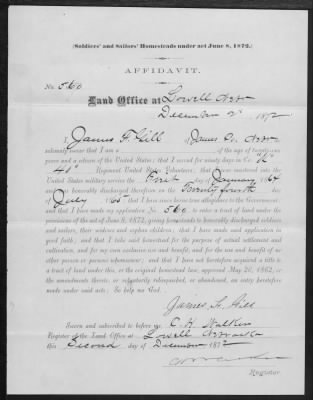 (Soldiers' and Sailors' Homesteads under act June 8, 1872.)
AFFIDAVIT.
No. 560
Land Office at Lowell
December 2d 1872
I, James F. Gill of
solemnly swear that I am a of the age of twenty-one
years and a citizen of the United States; that I served for ninety days in Co.
Regiment United States Volunteers; that I was mustered into
the United States military service the First day of January, 1864
and was honorably discharged therefrom on the Twenty fourth day
of July 1865; that I have since borne true allegiance to the Government;
and that I have made my application No. 560 for a tract of land under the
provisions of the act of June 8, 1872, giving homesteads to honorably discharged soldiers
and sailors, their widows and orphan children; that I have made said application in
good faith; and that I take said homestead for the purpose of actual settlement and
cultivation, and for my own exclusive use and benefit, and for the use and benefit of no
other person or persons whomsoever; and that I have not heretofore acquired a title to
a tract of land under this, or the original homestead law, approved May 20, 1862, or
the amendments thereto, or voluntarily relinquished, or abandoned, an entry heretofore
made under said acts; So help me God.
Sworn and subscribed to before me C. A. Walker
Register of the Land Office at Lowell Nebraska
this Second day of December 1872
Register.